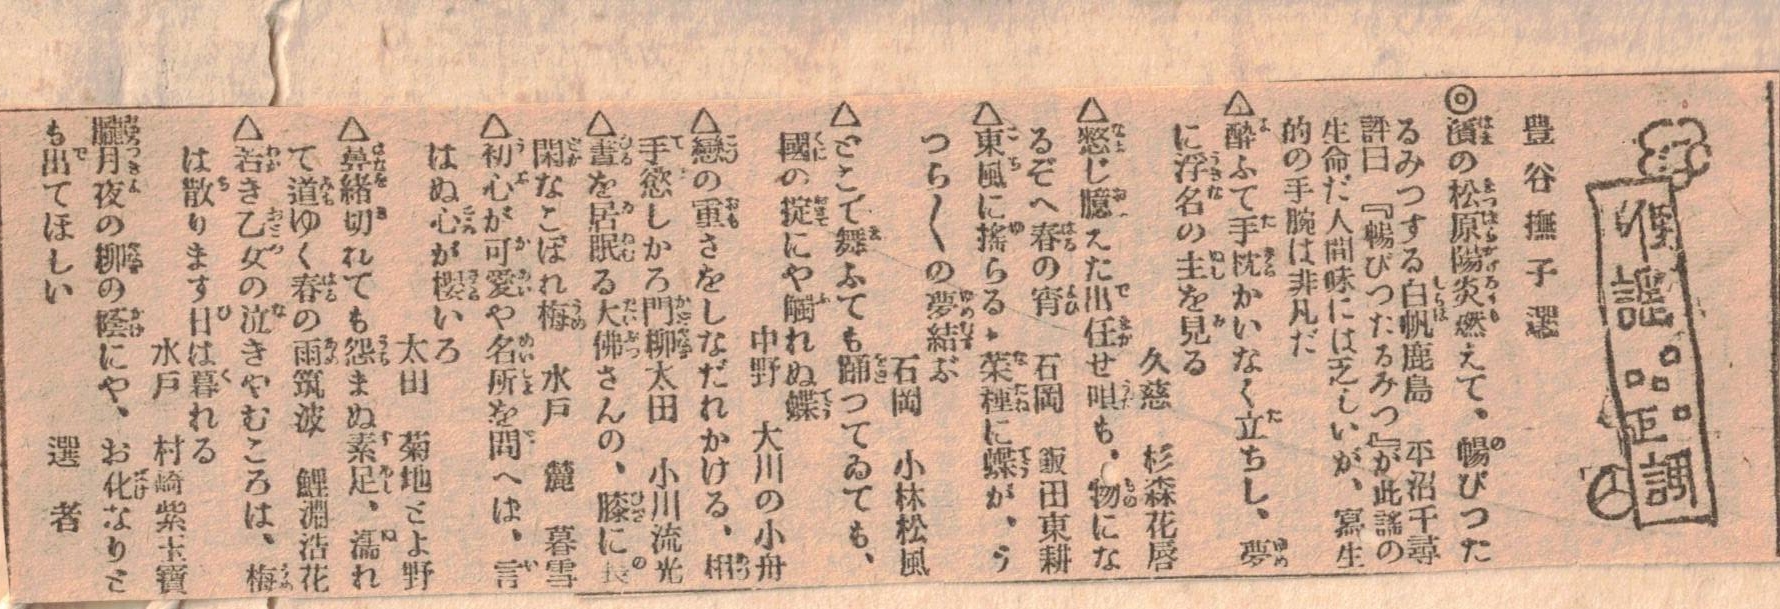 俚謡正調
豊谷撫子選
◎濱の松原陽炎燃えて、暢びつた
るみつする白帆鹿島　平沼千尋
評曰『暢びつたるみつ』が此謡の
生命だ人間味には乏しいが、寫生
的の手腕は非凡だ
△酔ふて手枕かいなく立ちし、夢
に浮名の主を見る
久慈　杉森花唇
△憖じ臆えた出任せ唄も、物にな
るぞへ春の宵　石岡　飯田東耕
△東風に搖らるゝ菜種に蝶が、う
つら〱の夢結ぶ
石岡　小林松風
△どこで舞ふても踊つてゐても、
國の掟にや觸れぬ蝶
中野　大川の小舟
△戀の重さをしなだれかける、相
手慾しかろ門柳太田　小川流光
△晝を居眠る大佛さんの、膝に長
閑なこぼれ梅　水戸　麓　暮雪
△初心が可愛や名所を問へは、言
はぬ心が櫻いろ
太田　菊地とよ野
△鼻緒切れても怨まぬ素足、濡れ
て道ゆく春の雨筑波　鯉淵浩花
△若き乙女の泣きやむころは、梅
は散ります日は暮れる
水戸　村崎紫玉寶
朧月夜の柳の蔭にや、お化なりと
も出てほしい　選者